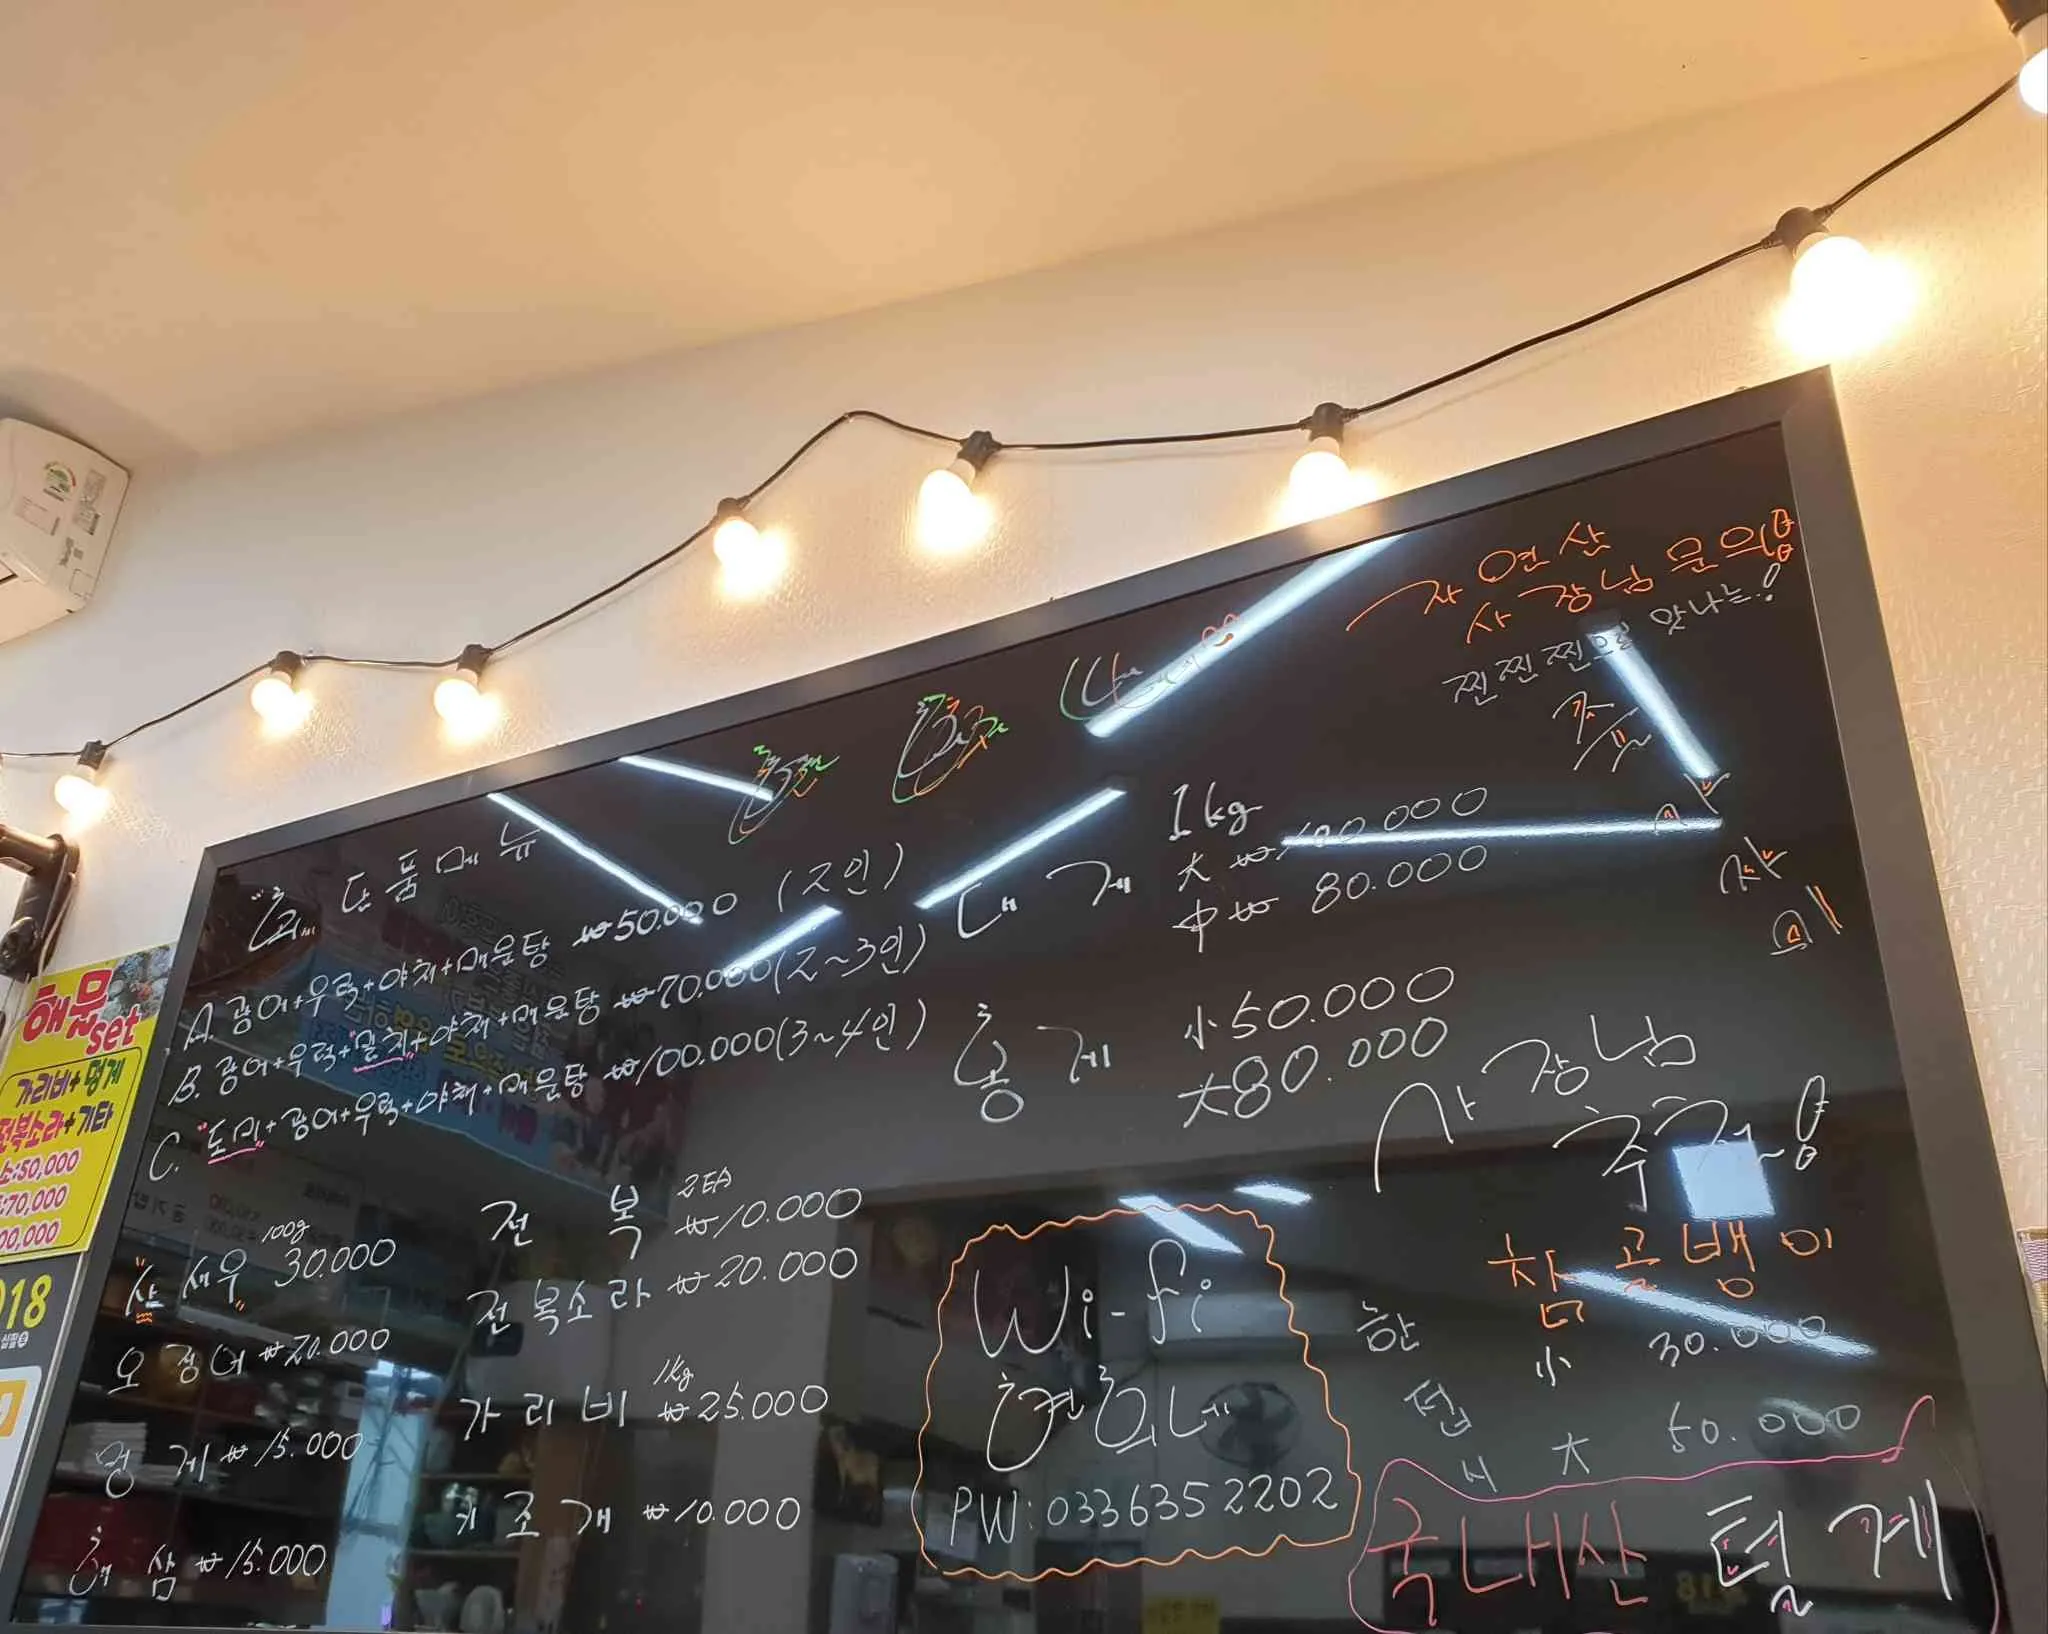 자연산
사장님 문의용
찐찐찐으로 맛나는!
"회" 단품메뉴
A. 광어+우럭+야채+매운탕 ₩50.000 (2인)
B. 광어+우럭+"밀치"+야채+매운탕 ₩70.000 (2~3인)
C. "도미"+광어+우럭+야채+매운탕 ₩100.000 (3~4인)
대게 1kg
大 ₩100.000
中 ₩80.000
홍게 小 50.000
大 80.000
"산새우" 100g 30.000
오징어 ₩20.000
멍게 ₩15.000
해삼 ₩15.000
전복 2EA ₩10.000
전복소라 ₩20.000
가리비 1kg ₩25.000
키조개 ₩10.000
Wi-fi
현회네
PW: 0336352202
사장님
추천~!
참골뱅이
한접시
小 30.000
大 50.000
국내산 털게
해물
set
가리비+멍게
전복소라+기타
소:50,000
:70,000
00,000
018